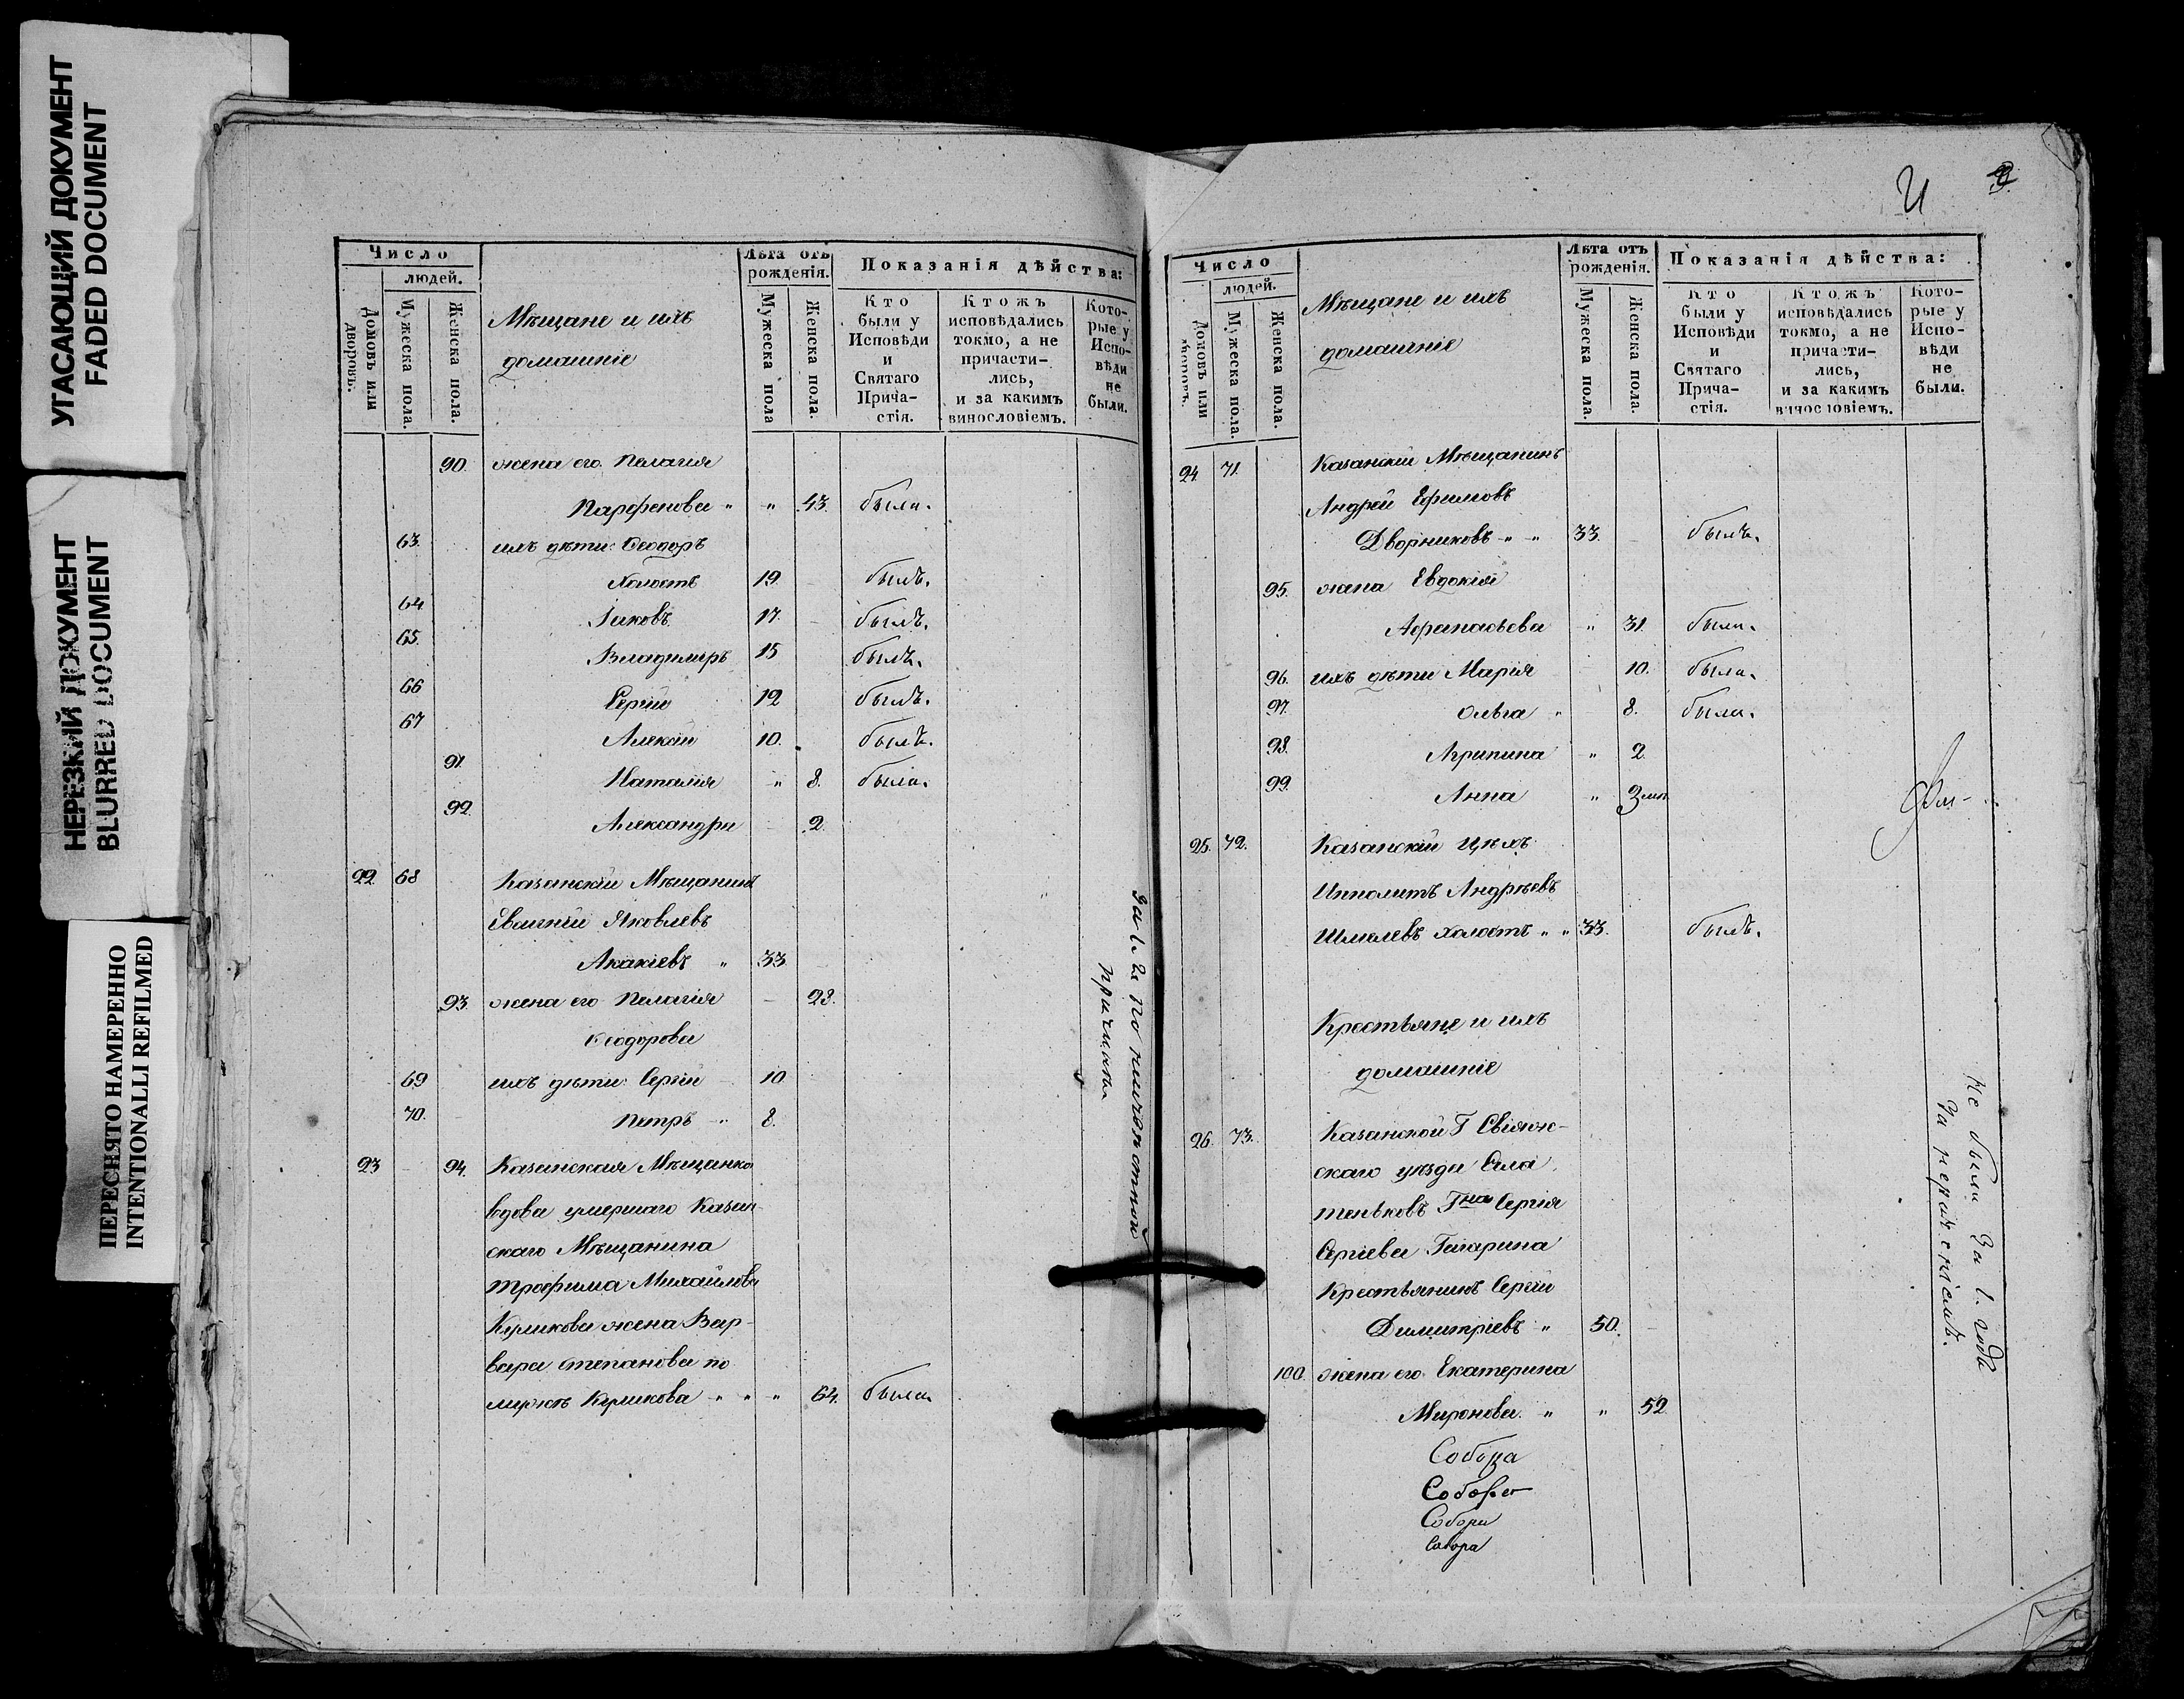 УГАСАЮЩИЙ ДОКУМЕНТ
FADED DOCUMENT
НЕРЕЗКИЙ ДОКУМЕНТ
BLURRED DOCUMENT
ПЕРЕСНЯТО НАМЕРЕННО
INTENTIONALLI REFILMED
Число
людей.
Домовъ или дворовъ.
Мужеска пола.
Женска пола.
Мѣщане и ихъ
домашніе
Лѣта отъ
рожденія.
Мужеска пола
Женска пола.
Показанія дѣйства:
Кто
были у
Исповѣди
и
Святаго
Прича-
стія.
Ктожъ
исповѣдались
токмо, а не
причасти-
лись,
и за какимъ
винословіемъ.
Кото-
рые у
Испо-
вѣди
не
были.
90. жена его Пелагія
Парфенова " " 43. была.
63. ихъ дѣти: Ѳеодоръ
Холостъ 19. былъ.
64. Іаковъ 17. былъ.
65. Владимиръ 15 былъ.
66 Сергій 12 былъ.
67 Алексѣй 10. былъ.
91. Наталія " 8. была.
92. Александра 2.
22. 68 Казанскій Мѣщанинъ
Евгеній Яковлевъ
Акакіевъ " 33.
93. жена его Пелагія 28.
Ѳеодорова
69 ихъ дѣти: Сергій 10
70. Петръ " 8.
23 94. Казанская Мѣщанка
вдова умершаго Казан-
скаго Мѣщанина
Трофима Михайлова
Куликова жена Вар-
вара Степанова по
мужѣ Куликова " " " 64. была.
За 1. и 2. по
причинѣ
И
Число
людей.
Домовъ или дворовъ.
Мужеска пола.
Женска пола.
Мѣщане и ихъ
домашніе
Лѣта отъ
рожденія.
Мужеска пола.
Женска пола.
Показанія дѣйства:
Кто
были у
Исповѣди
и
Святаго
Прича-
стія.
Ктожъ
исповѣдались
токмо, а не
причасти-
лись,
и за какимъ
винословіемъ.
Кото-
рые у
Испо-
вѣди
не
были.
24. 71. Казанскій Мѣщанинъ
Андрей Ефимовъ
Дворниковъ " " 33. былъ.
95. жена Евдокія
Афанасьева " 31. была.
96. ихъ дѣти Марія 10. была.
97. Ольга " 8. была.
98. Агрипина " 2.
99. Анна "
25. 72. Казанскій Цѣх.
Ипполитъ Андрѣевъ
Шмелевъ холостъ " " 33. былъ.
Крестьяне и ихъ
домашніе
26. 73. Казанской Г Свіяж-
скаго уѣзда Села
теньковъ Г на Сергія
Сергіева Гагарина
Крестьянинъ Сергій
Димитріевъ " 50.
100. жена его Екатерина
Миронова. " " 52.
Собора
Собора
Собора
Собора
Не были За 1. года
За